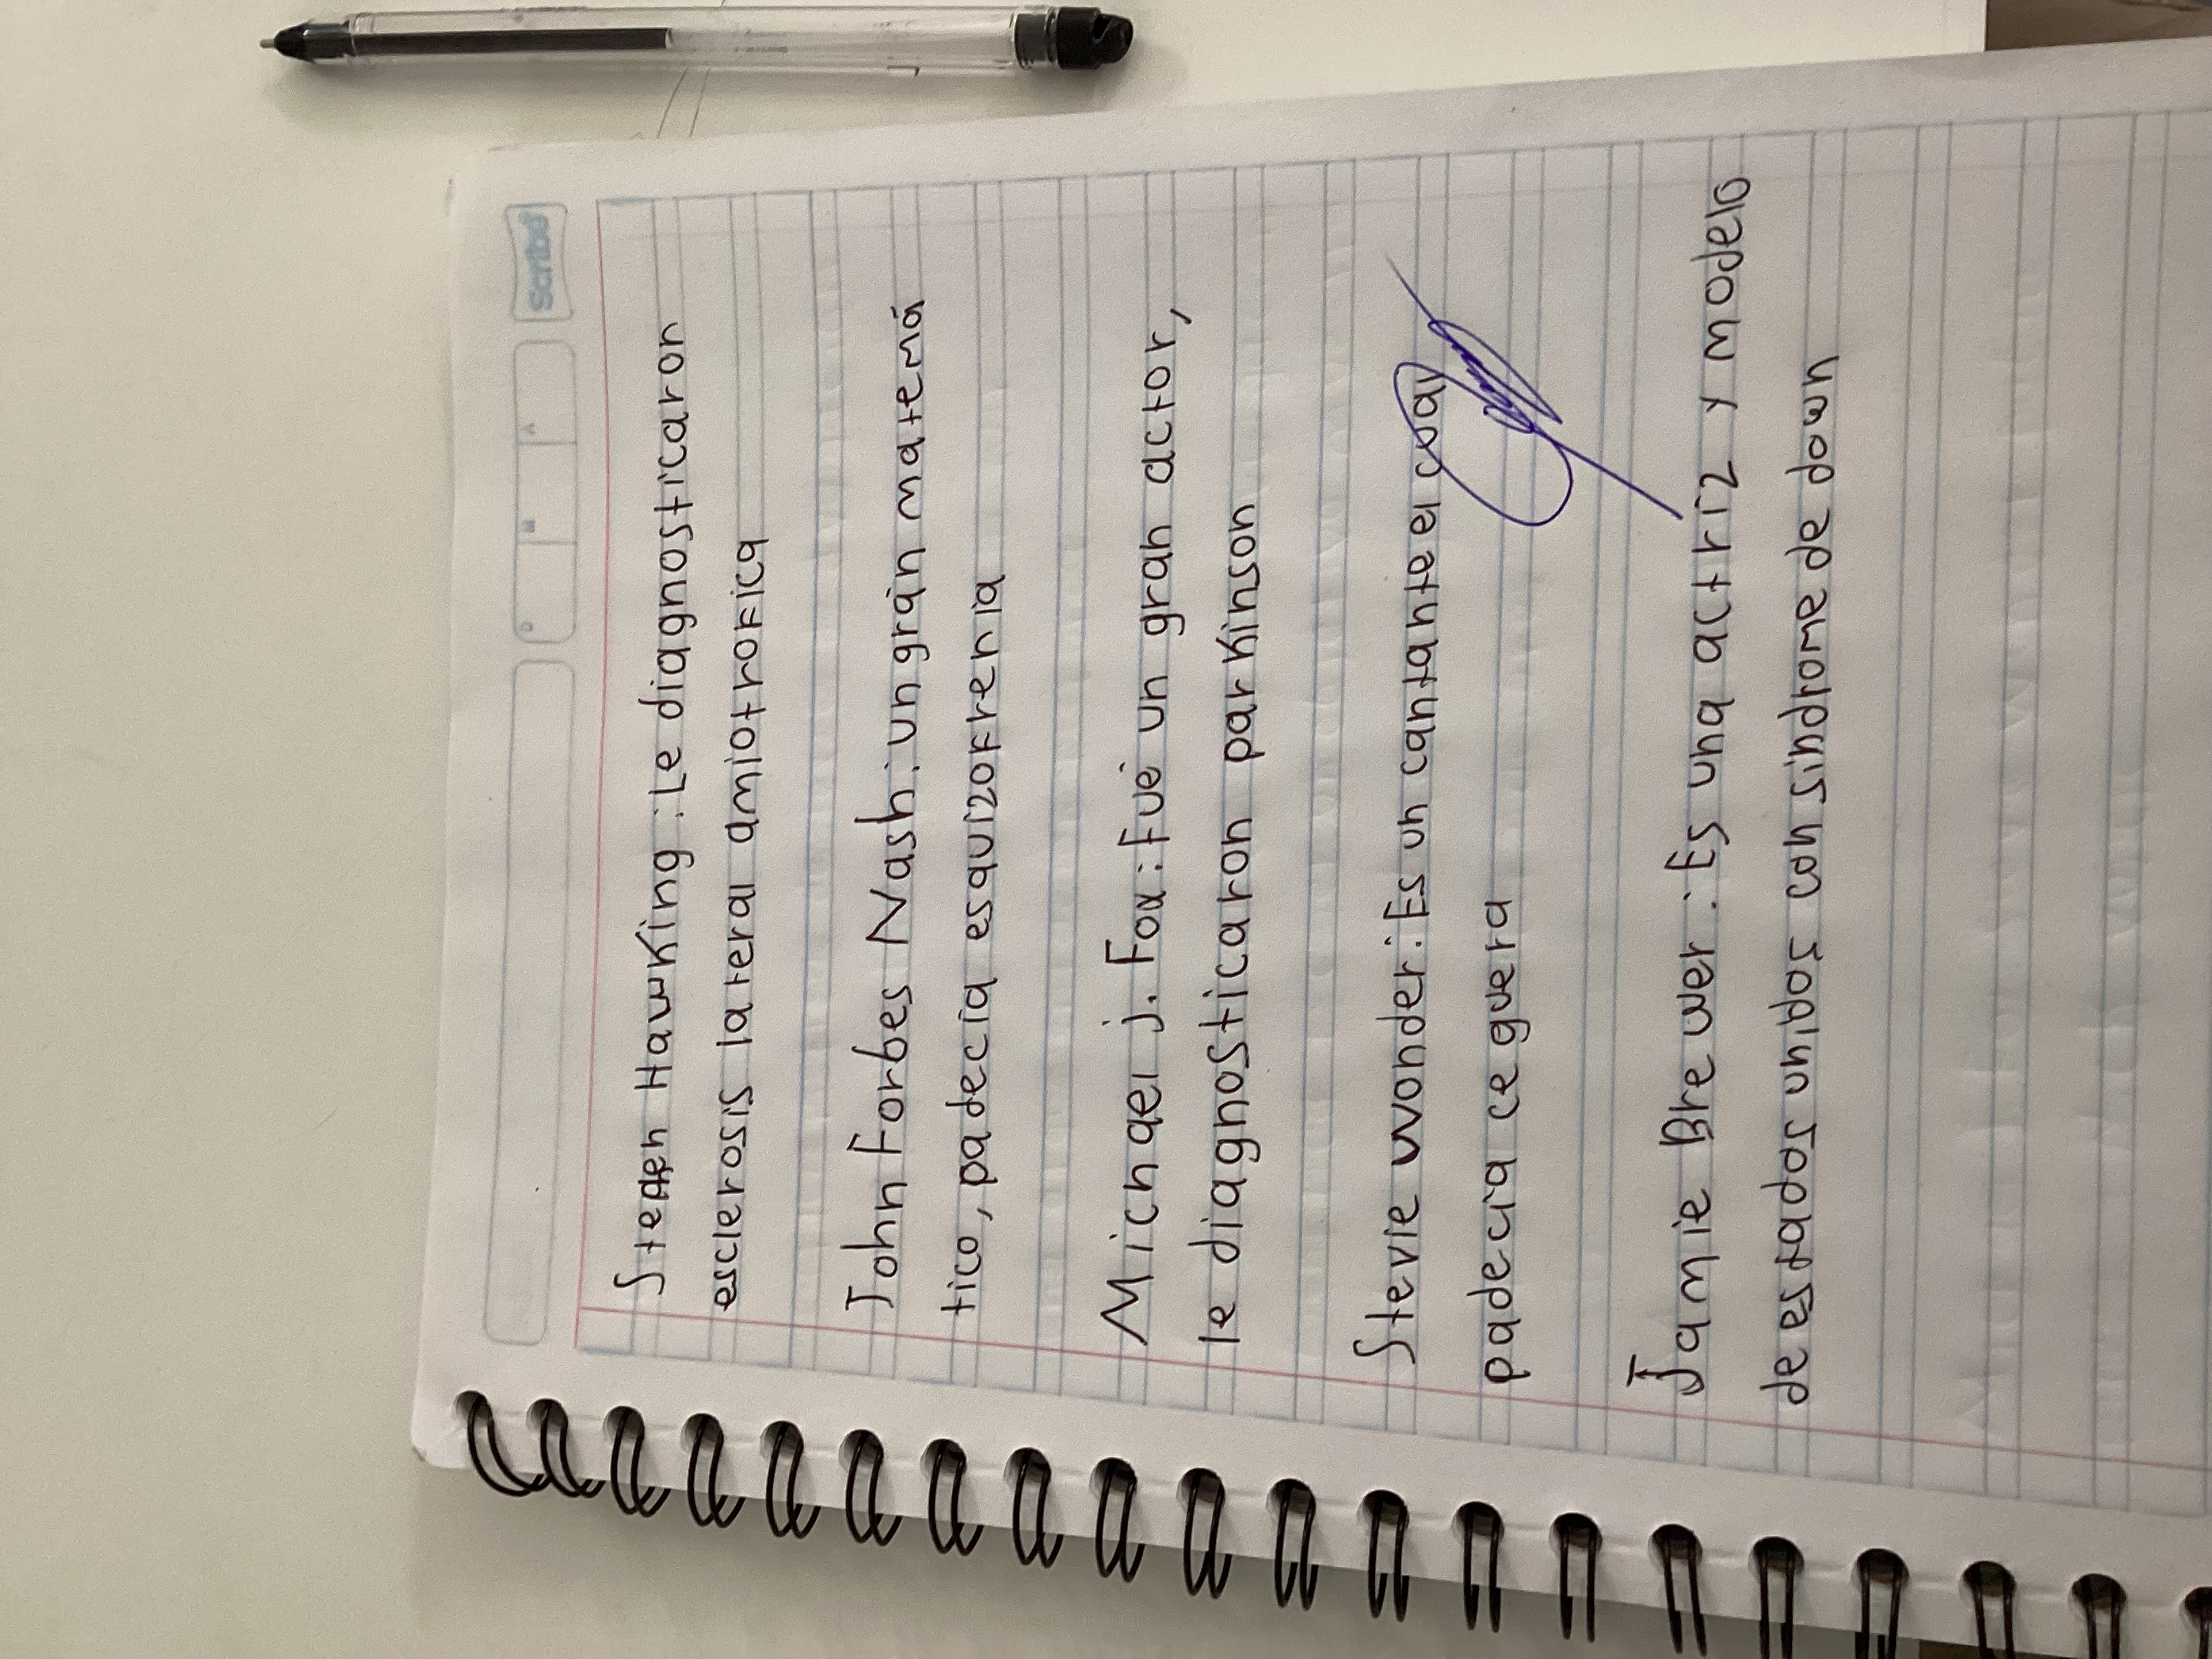 Scribe
D M A
Stephen Hawking: Le diagnosticaron
esclerosis lateral amiotrofica
John Forbes Nash: un gran matemá
tico, padecía esquizofrenia
Michael j. Fox: Fué un gran actor,
le diagnosticaron parkinson
Stevie wonder: Es un cantante el cual
padecía ceguera
Jamie Brewer: Es una actriz y modelo
de estados unidos con sindrome de down